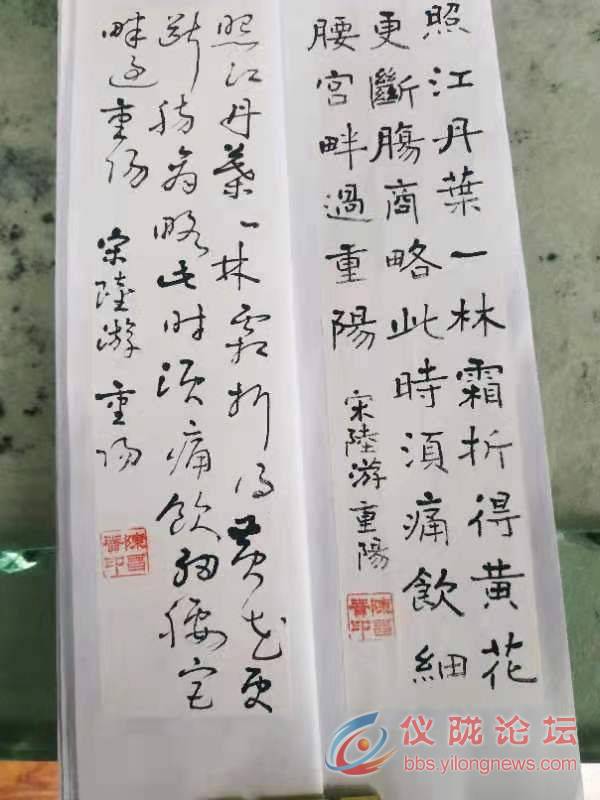 照江丹葉一林霜折得黄花
更斷腸商略此時須痛飲細
腰宮畔過重陽
宋陸游重陽
照江丹葉一林霜折得黄花更
斷腸商略此時須痛飲細腰宮
畔過重陽
宋陸游 重陽
仪陇论坛
bbs.yilongnews.com